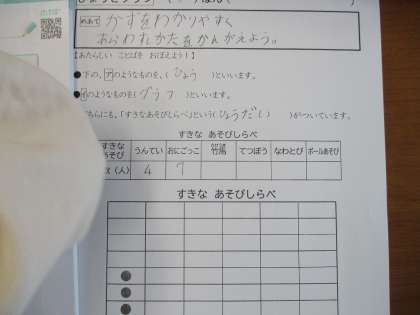 めあて かずをわかりやすく
あらわしかたをかんがえよう。
【あたらしい ことばを おぼえよう!】
●下の、アのようなものを、(ひょう)といいます。
のようなものを(グラフ)といいます。
ちらにも、「すきなあそびしらべ」という(ひょうだい)がついています。
すきな あそびしらべ
すきな あそび うんてい おにごっこ 竹馬 てつぼう なわとび ボールあそび
(人) 4 7
すきな あそびしらべ